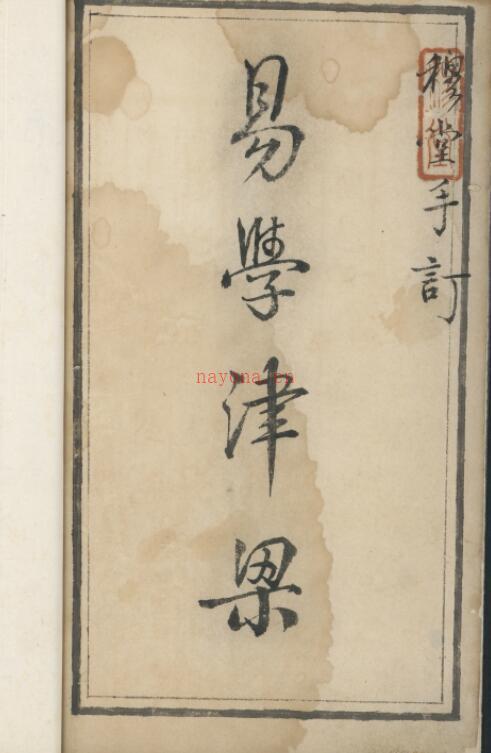 穆堂手訂
易學津梁
nayona.cn